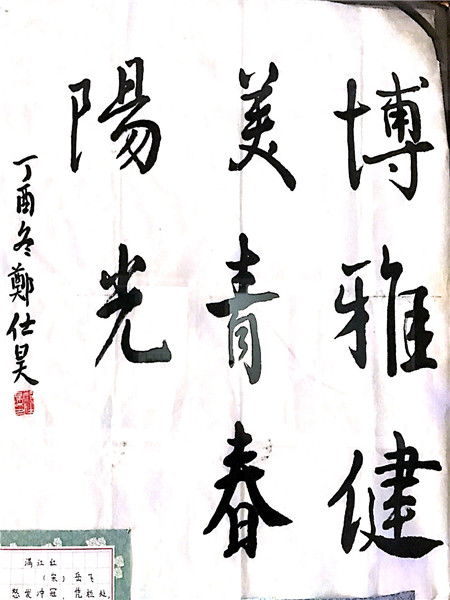 博雅健
美青春
陽光
丁酉冬鄭仕昊
满江红
(宋)岳飞
怒发冲冠,凭栏处